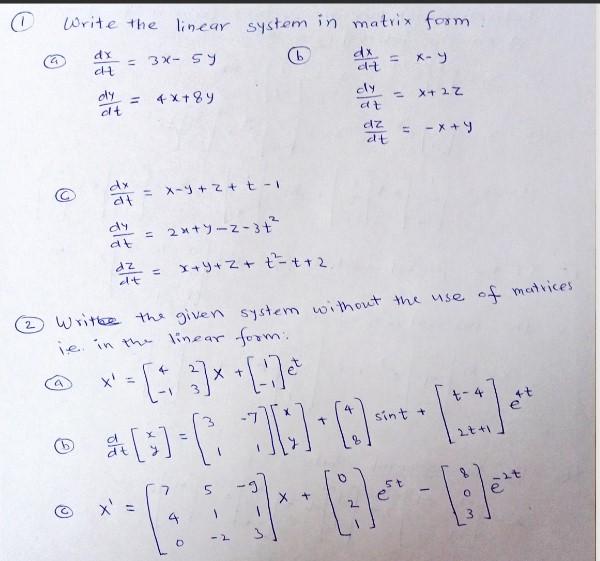 ① Write the linear system in matrix form.
ⓐ dx/dt = 3x - 5y ⓑ dx/dt = x - y
dy/dt = 4x + 8y dy/dt = x + 2z
dz/dt = -x + y
ⓒ dx/dt = x - y + z + t - 1
dy/dt = 2x + y - z - 3t²
dz/dt = x + y + z + t² - t + 2
② Write the given system without the use of matrices
i.e. in the linear form:
ⓐ x' = [4 2; -1 3] x + [1; -1] e^t
ⓑ d/dt [x; y] = [3 -7; 1 1] [x; y] + [4; 8] sin t + [t-4; 2t+1] e^4t
ⓒ x' = [7 5 -9; 4 1 1; 0 -2 3] x + [0; 2; 1] e^5t - [8; 0; 3] e^-2t